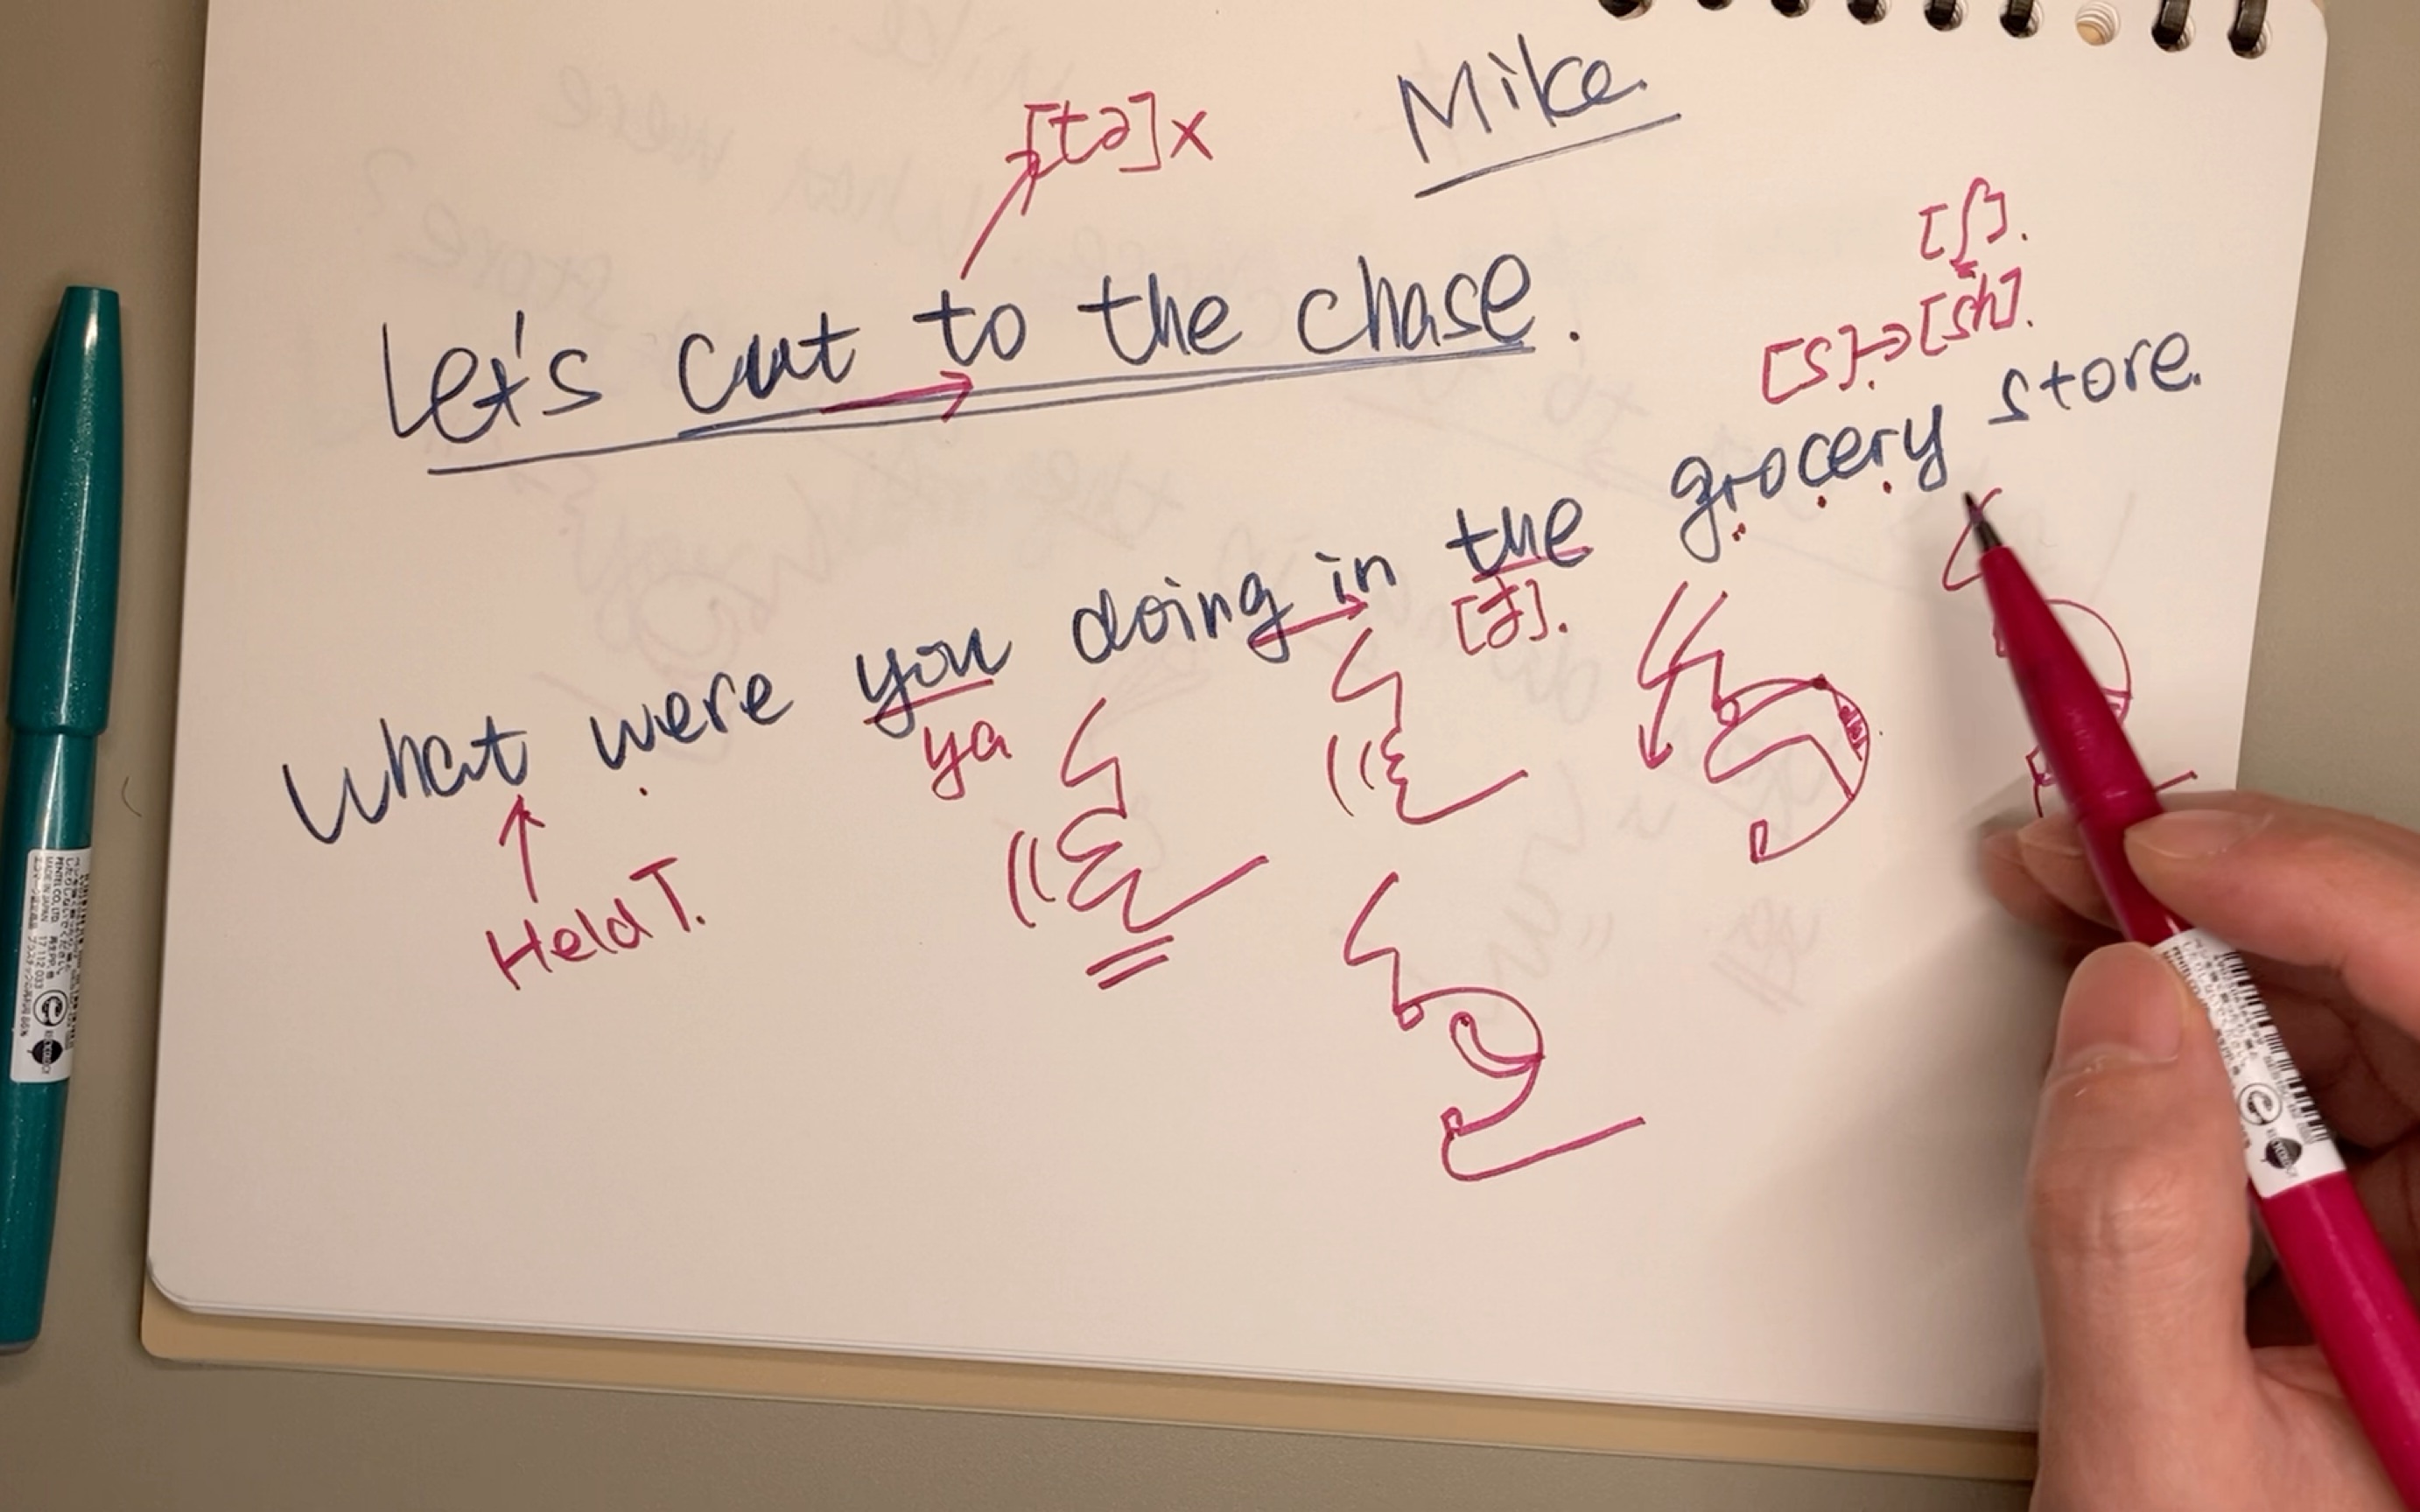 Mike.
[tə] x
Let's cut to the chase.
[ʃ].
[s].→[sh].
What were you doing in the grocery store.
ya
Held T.